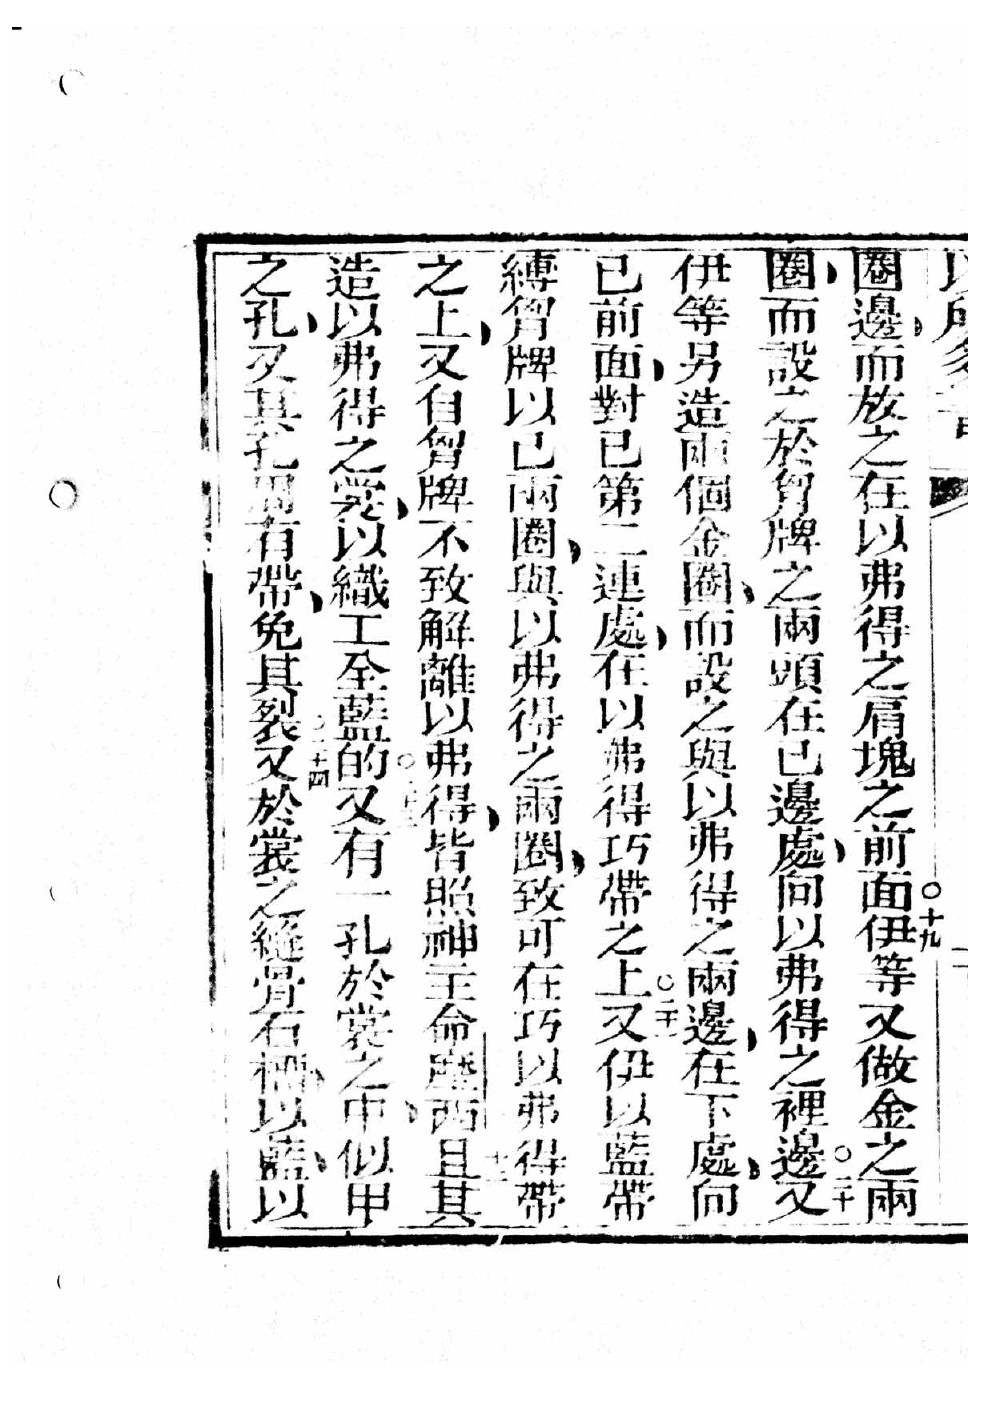 圈邊而放之在以弗得之肩塊之前面○十九伊等又做金之兩
圈而設之於胷牌之兩頭在已邊處向以弗得之裡邊○二十又
伊等另造兩個金圈而設之與以弗得之兩邊在下處向
已前面對已第二連處在以弗得巧帶之上○二十一又伊以藍帶
縛胷牌以已兩圈與以弗得之兩圈致可在巧以弗得帶
之上又自胷牌不致解離以弗得皆照神主命摩西○二十二且其
造以弗得之裳以織工全藍的○二十三又有一孔於裳之中似甲
之孔又其孔周有帶免其裂○二十四又於裳之縫骨石榴以藍以